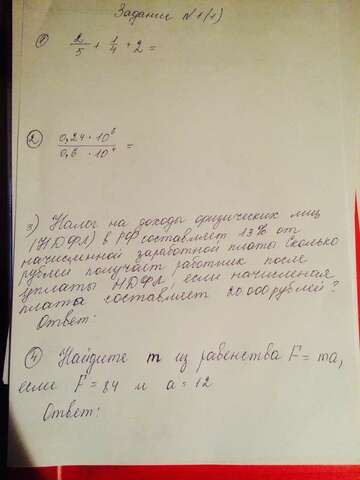 Задание №1(1)
1) 2/5 + 1/4 + 2 =
2) 0,24 · 10⁶ / 0,6 · 10⁴ =
3) Налог на доходы физических лиц
(НДФЛ) в РФ составляет 13% от
начисленной заработной платы. Сколько
рублей получает работник после
уплаты НДФЛ, если начисленная
плата составляет 20 000 рублей?
Ответ:
4) Найдите m из равенства F = ma,
если F = 84 и a = 12
Ответ: